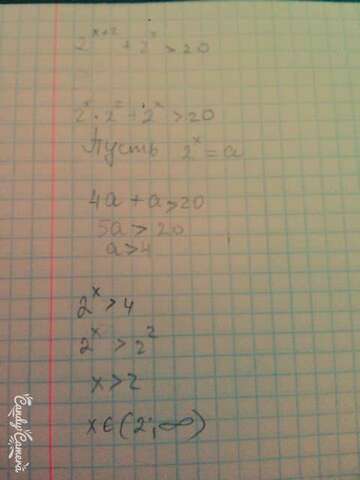 2^{x+2} + 2^x > 20
2^x · 2^2 + 2^x > 20
Пусть 2^x = a
4a + a > 20
5a > 20
a > 4
2^x > 4
2^x > 2^2
x > 2
x ∈ (2; ∞)
CandyCamera